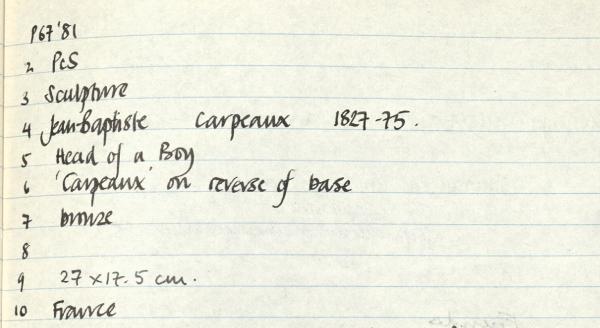 P67'81
2 PcS
3 Sculpture
4 Jean-Baptiste Carpeaux 1827-75.
5 Head of a Boy
6 'Carpeaux' on reverse of base
7 bronze
8
9 27 x 17.5 cm.
10 France